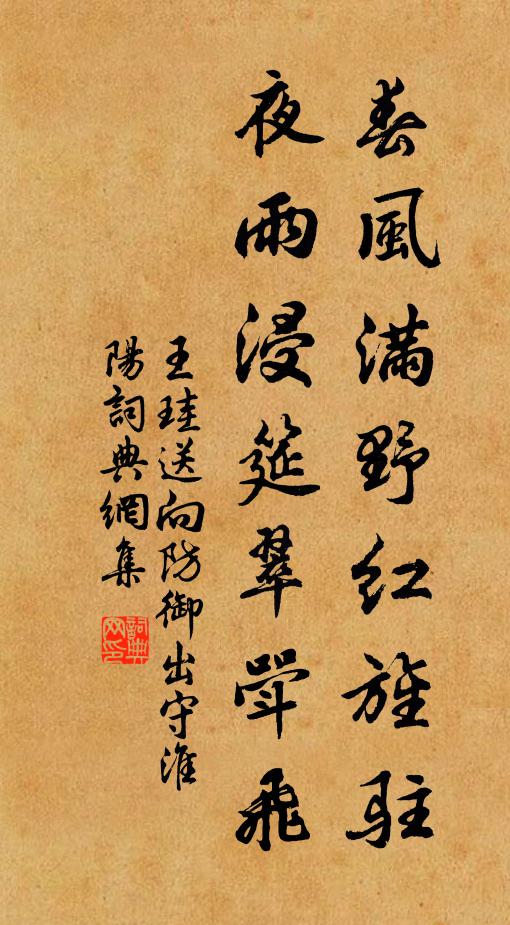 春風滿野紅旌駐
夜雨浸筵翠斝飛
王珪送向防御出守淮
陽詞典網集
詞典
网印